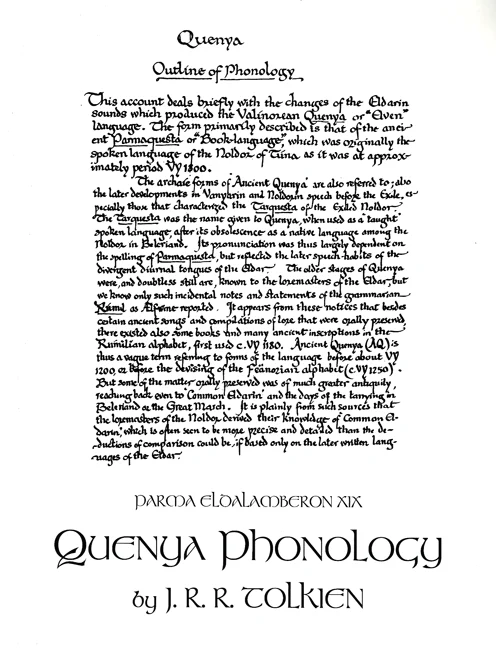 Quenya
Outline of Phonology
This account deals briefly with the changes of the Eldarin
sounds which produced the Valinorean Quenya or "Elven"
language. The form primarily described is that of the anci-
ent Parmaquesta or "Book-language", which was originally the
spoken language of the Noldor of Túna, as it was at approx-
imately period VY 1800.
The archaic forms of 'Ancient Quenya' are also referred to; also
the later developments in Vanyarin and Noldorin speech before the Exile, es-
pecially those that characterized the Tarquesta of the Exiled Noldor.
The Tarquesta was the name given to Quenya, when used as a 'taught'
spoken language, after its obsolescence as a native language among the
Noldor in Beleriand. Its pronunciation was thus largely dependent on
the spelling of Parmaquesta, but reflected the later speech-habits of the
divergent diurnal tongues of the Eldar. The older stages of Quenya
were, and doubtless still are, known to the loremasters of the Eldar, but
we know only such incidental notes and statements of the grammarian
Rúmil as Ælfwine reported. It appears from these notices that besides
certain ancient songs and compilations of lore that were orally preserved
there existed also some books and many ancient inscriptions in the
Rúmilian alphabet, first used c. VY 1180. Ancient Quenya (AQ) is
thus a vague term referring to forms of the language before about VY
1200, or before the devising of the Fëanorian alphabet (c. VY 1250).
But some of the matter orally preserved was of much greater antiquity,
reaching back even to 'Common Eldarin' and the days of the tarrying in
Beleriand or the Great March. It is plainly from such sources that
the loremasters of the Noldor derived their knowledge of 'Common El-
darin', which is often seen to be more precise and detailed than the de-
ductions of comparison could be, if based only on the later written lang-
uages of the Eldar.
PARMA ELDALAMBERON XIX
QUENYA PHONOLOGY
by J. R. R. TOLKIEN